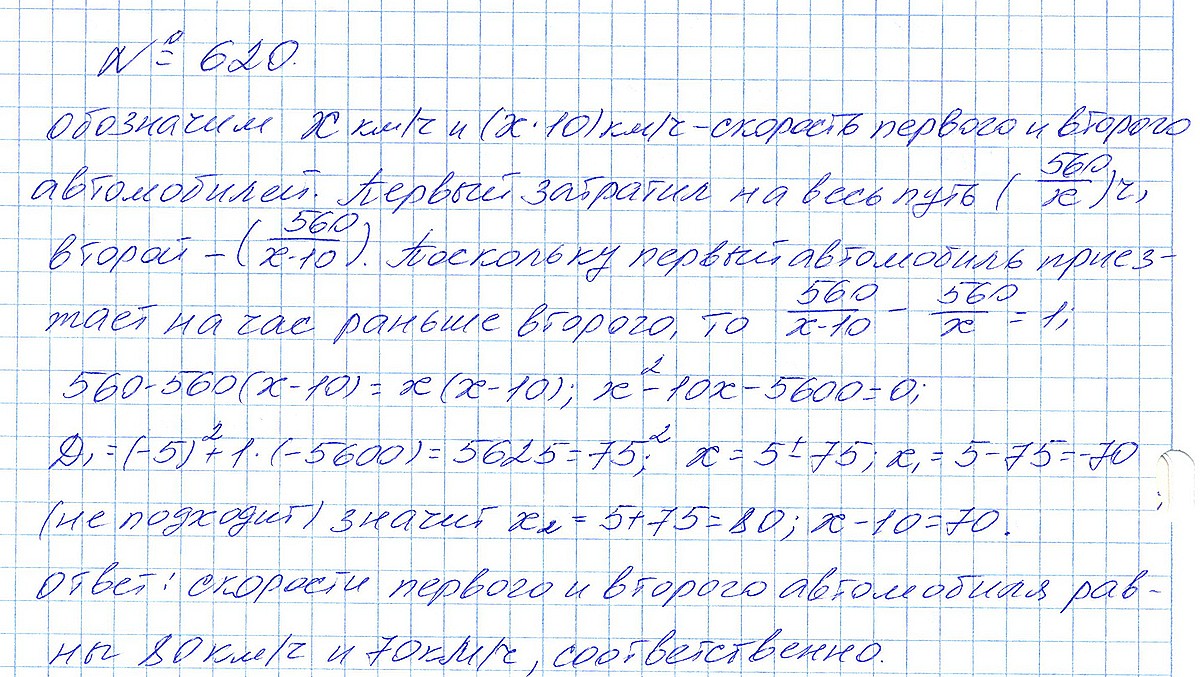 № 620.
обозначим x км/ч и (x·10) км/ч - скорость первого и второго
автомобилей. Первый затратил на весь путь (560/x) ч,
второй - (560/x-10). Поскольку первый автомобиль приез-
жает на час раньше второго, то 560/x-10 - 560/x = 1;
560-560(x-10) = x(x-10); x²-10x-5600=0;
D₁=(-5)²+1·(-5600)=5625=75²; x=5±75; x₁=5-75=-70
(не подходит) значит x₂=5+75=80; x-10=70.
ответ: скорости первого и второго автомобиля рав-
ны 80км/ч и 70км/ч, соответственно.